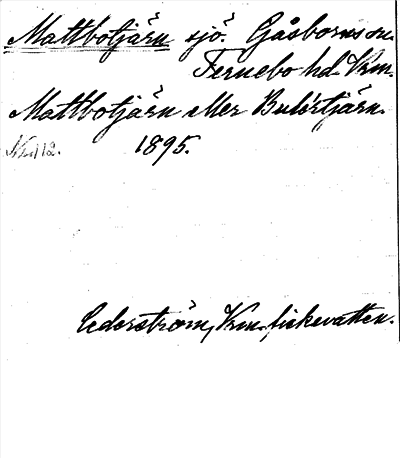 Mattbotjärn sjö. Gåsborns sn.
Fernebo hd. Vrm.
Mattbotjärn eller Bulörtjärn.
1895.
Cederström, Vrm. fiskevatten.